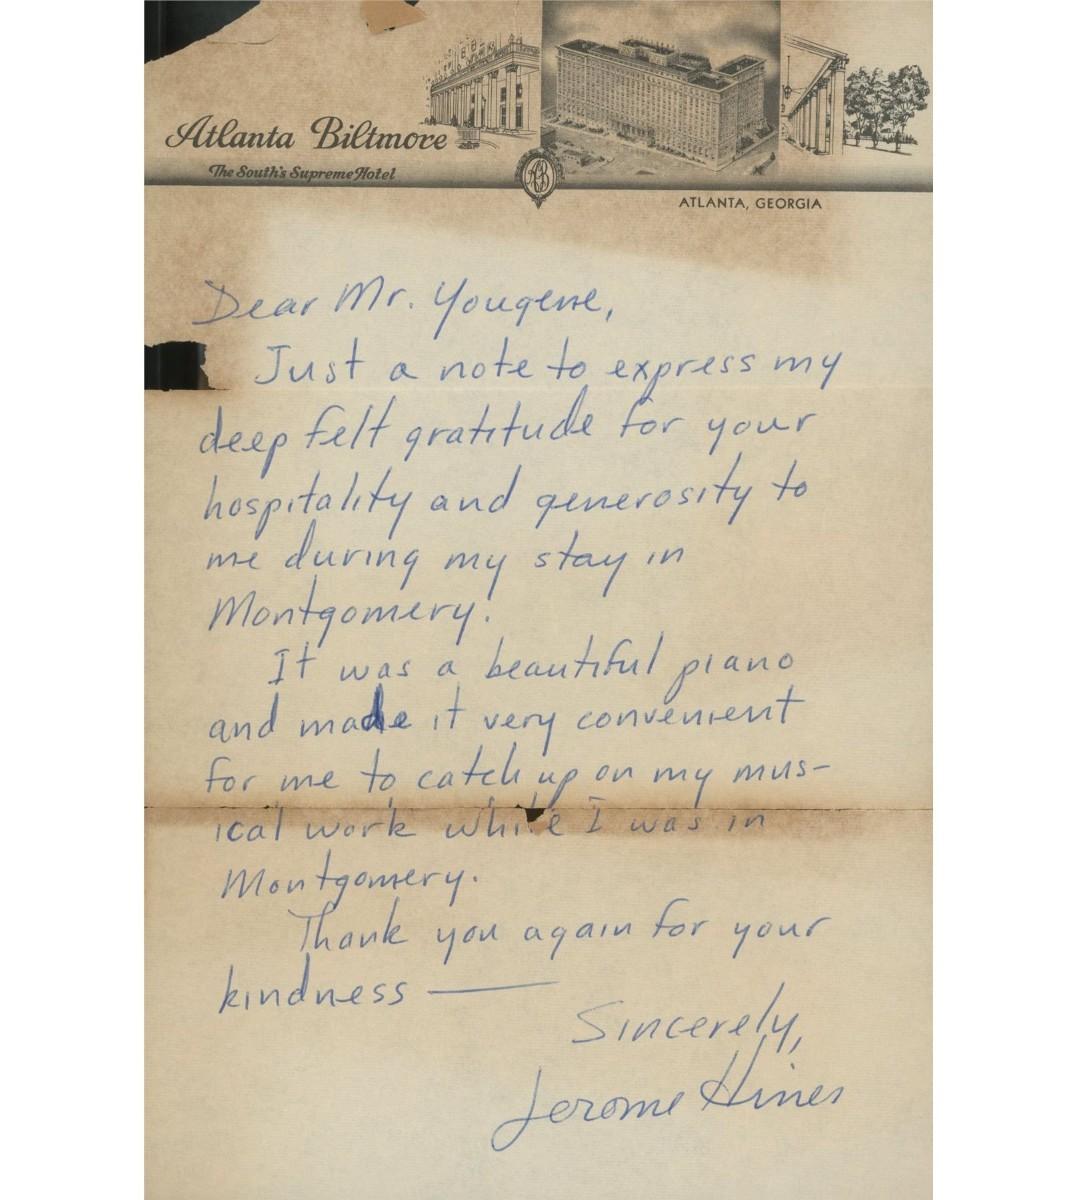 Atlanta Biltmore
The South's Supreme Hotel
ACB
ATLANTA, GEORGIA
Dear Mr. Yougene,
Just a note to express my
deep felt gratitude for your
hospitality and generosity to
me during my stay in
Montgomery.
It was a beautiful piano
and made it very convenient
for me to catch up on my mus-
ical work while I was in
Montgomery.
Thank you again for your
kindness —
Sincerely,
Jerome Hines